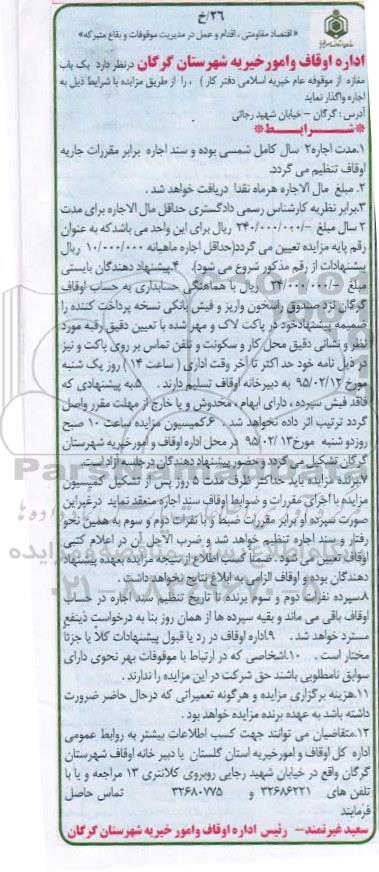 ۲۶/خ
«اقتصاد مقاومتی، اقدام و عمل در مدیریت موقوفات و بقاع متبرکه»
اداره اوقاف وامورخیریه شهرستان گرگان درنظر دارد یک باب
مغازه از موقوفه عام خیریه اسلامی دفتر کار) ، را از طریق مزایده با شرایط ذیل به
اجاره واگذار نماید
آدرس : گرگان – خیابان شهید رجائی
*شـــرایـــط*
۱.مدت اجاره۲ سال کامل شمسی بوده و سند اجاره برابر مقررات جاریه
اوقاف تنظیم می گردد.
۲. مبلغ مال الاجاره هرماه نقدا دریافت خواهد شد .
۳.برابر نظریه کارشناس رسمی دادگستری حداقل مال الاجاره برای مدت
۲ سال مبلغ –/۲۴۰/۰۰۰/۰۰۰ ریال برای این واحد می باشدکه به عنوان
رقم پایه مزایده تعیین می گردد(حداقل اجاره ماهیانه ۱۰/۰۰۰/۰۰۰ ریال
پیشنهادات از رقم مذکور شروع می شود). ۴.پیشنهاد دهندگان بایستی
مبلغ –/۲۴/۰۰۰/۰۰۰ ریال با هماهنگی حسابداری به حساب اوقاف
گرگان نزد صندوق رسخون واریز و فیش بانکی نسخه پرداخت کننده را
ضمیمه پیشنهادخود در پاکت لاک و مهر شده با تعیین دقیق رقبه مورد
نظر و نشانی دقیق محل کار و سکونت و تلفن تماس بر روی پاکت و نیز
در ذیل نامه خود حد اکثر تا آخر وقت اداری ( ساعت ۱۴) روز یک شنبه
مورخ ۹۵/۰۲/۱۲ به دبیرخانه اوقاف تسلیم دارند . ۵.به پیشنهادی که
فاقد فیش سپرده ، دارای ابهام ، مخدوش و یا خارج از مهلت مقرر واصل
گردد ترتیب اثر داده نخواهد شد . ۶.کمیسیون مزایده ساعت ۱۰ صبح
روزدو شنبه مورخ۹۵/۰۲/۱۳ در محل اداره اوقاف و امورخیریه شهرستان
گرگان تشکیل می گردد و حضور پیشنهاد دهندگان در جلسه آزاد است.
۷.برنده مزایده باید حداکثر ظرف مدت ۵ روز پس از تشکیل کمیسیون
مزایده با اجرای مقررات و ضوابط اوقاف سند اجاره منعقد نماید درغیراین
صورت سپرده او برابر مقررات ضبط و با نفرات دوم و سوم به همین نحو
رفتار و سند اجاره تنظیم خواهد شد و ضرب الاجل آن در اعلام کتبی
اوقاف تعیین می شود . ضمنا کسب اطلاع از نتیجه مزایده بعهده پیشنهاد
دهندگان بوده و اوقاف الزامی به ابلاغ نتایج نخواهد داشت .
۸.سپرده نفرات دوم و سوم برنده تا تاریخ تنظیم سند اجاره در حساب
اوقاف باقی می ماند و بقیه سپرده ها از همان روز بنا به درخواست ذینفع
مسترد خواهد شد . ۹.اداره اوقاف در رد یا قبول پیشنهادات کلاً یا جزئاً
مختار است . ۱۰.اشخاصی که در ارتباط با موقوفات بهر نحوی دارای
سوابق نامطلوبی باشند حق شرکت در این مزایده را ندارند .
۱۱.هزینه برگزاری مزایده و هرگونه تعمیراتی که درحال حاضر ضرورت
داشته باشد به عهده برنده مزایده خواهد بود .
۱۲.متقاضیان می توانند جهت کسب اطلاعات بیشتر به روابط عمومی
اداره کل اوقاف و امورخیریه استان گلستان یا دبیر خانه اوقاف شهرستان
گرگان واقع در خیابان شهید رجایی روبروی کلانتری ۱۳ مراجعه و یا با
تلفن های ۳۲۶۸۶۲۲۱ و ۳۲۶۸۰۷۷۵ تماس حاصل
فرمایند
سعید غیرتمند– رئیس اداره اوقاف وامور خیریه شهرستان گرگان